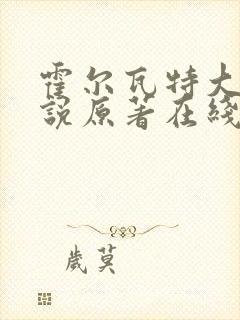 霍尔瓦特大
說原著在綫
歲莫